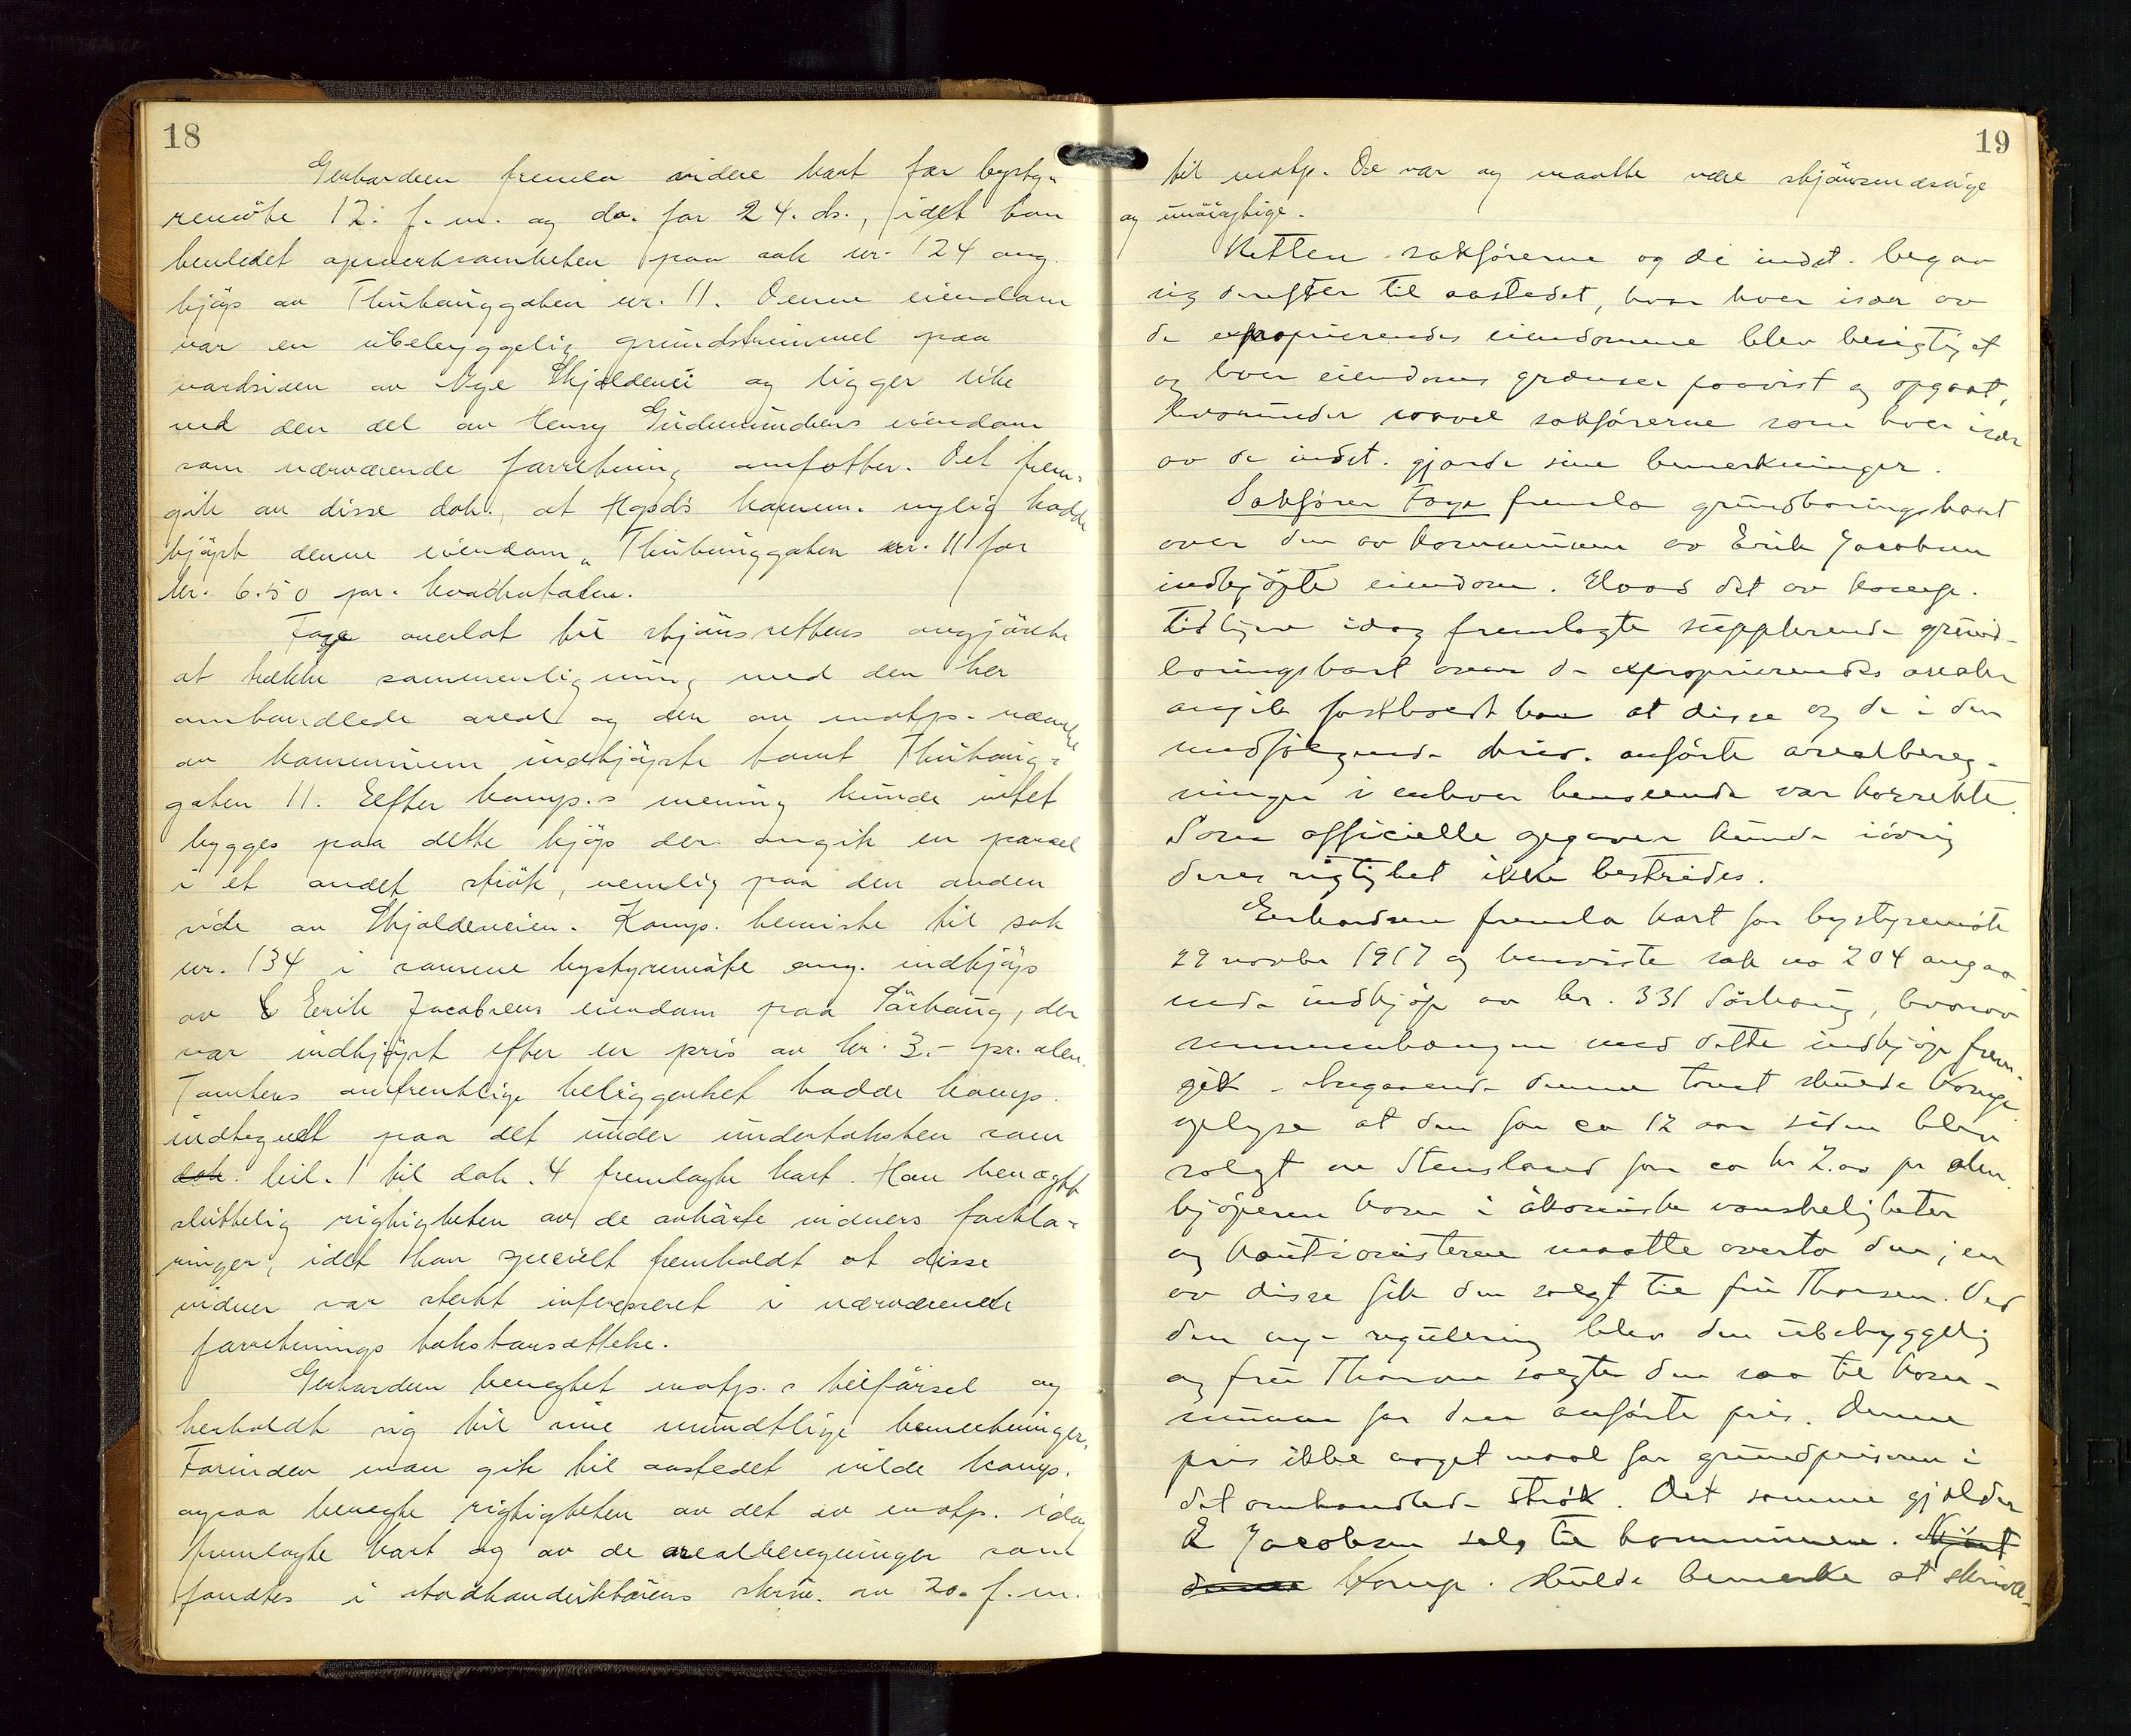 18
Gerhardsen fremla videre kart for bysty-
remöte 12. f.m. og do. for 24. ds., idet han
henledet opmerksomheten paa sak nr. 124 ang.
kjöp av Thuhauggaten nr. 11. Denne eiendom
var en ubebyggelig grundstrimmel paa
nordsiden av Nye Skjoldevei og ligger like
ved den del av Henry Gudmundsens eiendom
som nærværende forretning omfatter. Det frem-
gik av disse dok., at Hgsds komm. nylig hadde
kjöpt denne eiendom, Thuhauggaten nr. 11 for
kr. 6.50 pr. kvadratalen.
Fage overlot til skjönsrettens avgjörelse
at trække sammenligning med den her
omhandlede areal og den av motp. nævnte
av kommunen indkjöpte tomt Thuhaug-
gaten 11. Eefter komp.s mening kunde intet
bygges paa dette kjöp der angik en parcel
i et andet strök, nemlig paa den anden
side av Skjoldeveien. Komp. henviste til sak
nr. 134 i samme bystyremöte ang. indkjöp
av Erik Jacobsens eiendom paa Sörhaug, der
var indkjöpt efter en pris av kr. 3.- pr. alen.
Tomtens omtrentlige beliggenhet hadde komp.
indtegnet paa det under undertaksten som
dok. bil. 1 til dok. 4 fremlagte kart. Han benægtet
sluttelig rigtigheten av de avhörte vidners forkla-
ringer, idet han specielt fremholdt at disse
vidner var sterkt interesseret i nærværende
forretnings takstansættelse.
Gerhardsen benegtet motp.s tilförsel og
henholdt sig til sine mundtlige bemerkninger.
Forinden man gik til aastedet vilde komp.
ogsaa benegte rigtigheten av det av motp. idag
fremlagte kart og av de arealberegninger som
fandtes i stadkonduktörens skriv. av 20. f.m.
19
til motp. De var og maatte være skjönsmæssige
og unöiagtige.
Retten sakförerne og de indst. begav
sig derefter til aastedet, hvor hver især av
de exproprierendes eiendomme blev besigtiget
og hver eiendoms grænser paavist og opgaat,
hvorunder saavel sakförerne som hver især
av de indst. gjorde sine bemerkninger.
Sakförer Fage fremla grundboringskart
over den av kommunen av Erik Jacobsen
indkjöpte eiendom. Hvad det av komp.
tidligere idag fremlagte supplerende grund-
boringskart over de exproprierendes arealer
angik fastholdt han at disse og de i den
medfölgende skriv. anförte arealbereg-
ninger i enhver henseende var korrekte.
Som officielle opgaver kunde iövrig
deres rigtighet ikke bestrides.
Gerhardsen fremla kart for bystyremöte
29 novbr 1917 og henviste sak no 204 angaa-
ende indkjöp av br. 331 Sörhaug, hvorav
sammenhengen med dette indkjöp frem-
gik. Angaaende denne tomt skulde komp
oplyse at den for ca 12 aar siden blev
solgt av Stensland for ca kr 2.00 pr alen.
kjöperen kom i ökonomiske vanskeligheter
og kautionisterne maatte overta den; en
av disse fik den solgt til fru Thorsen. Ved
den nye regulering blev den ubebyggelig
og fru Thorsen solgte den saa til kom-
munen for den anförte pris. Denne
pris ikke noget maal for grundprisene i
det omhandlede strök. Det samme gjælder
E Jacobsens salg til kommunen.
Komp. skulde bemerke at skrivel-